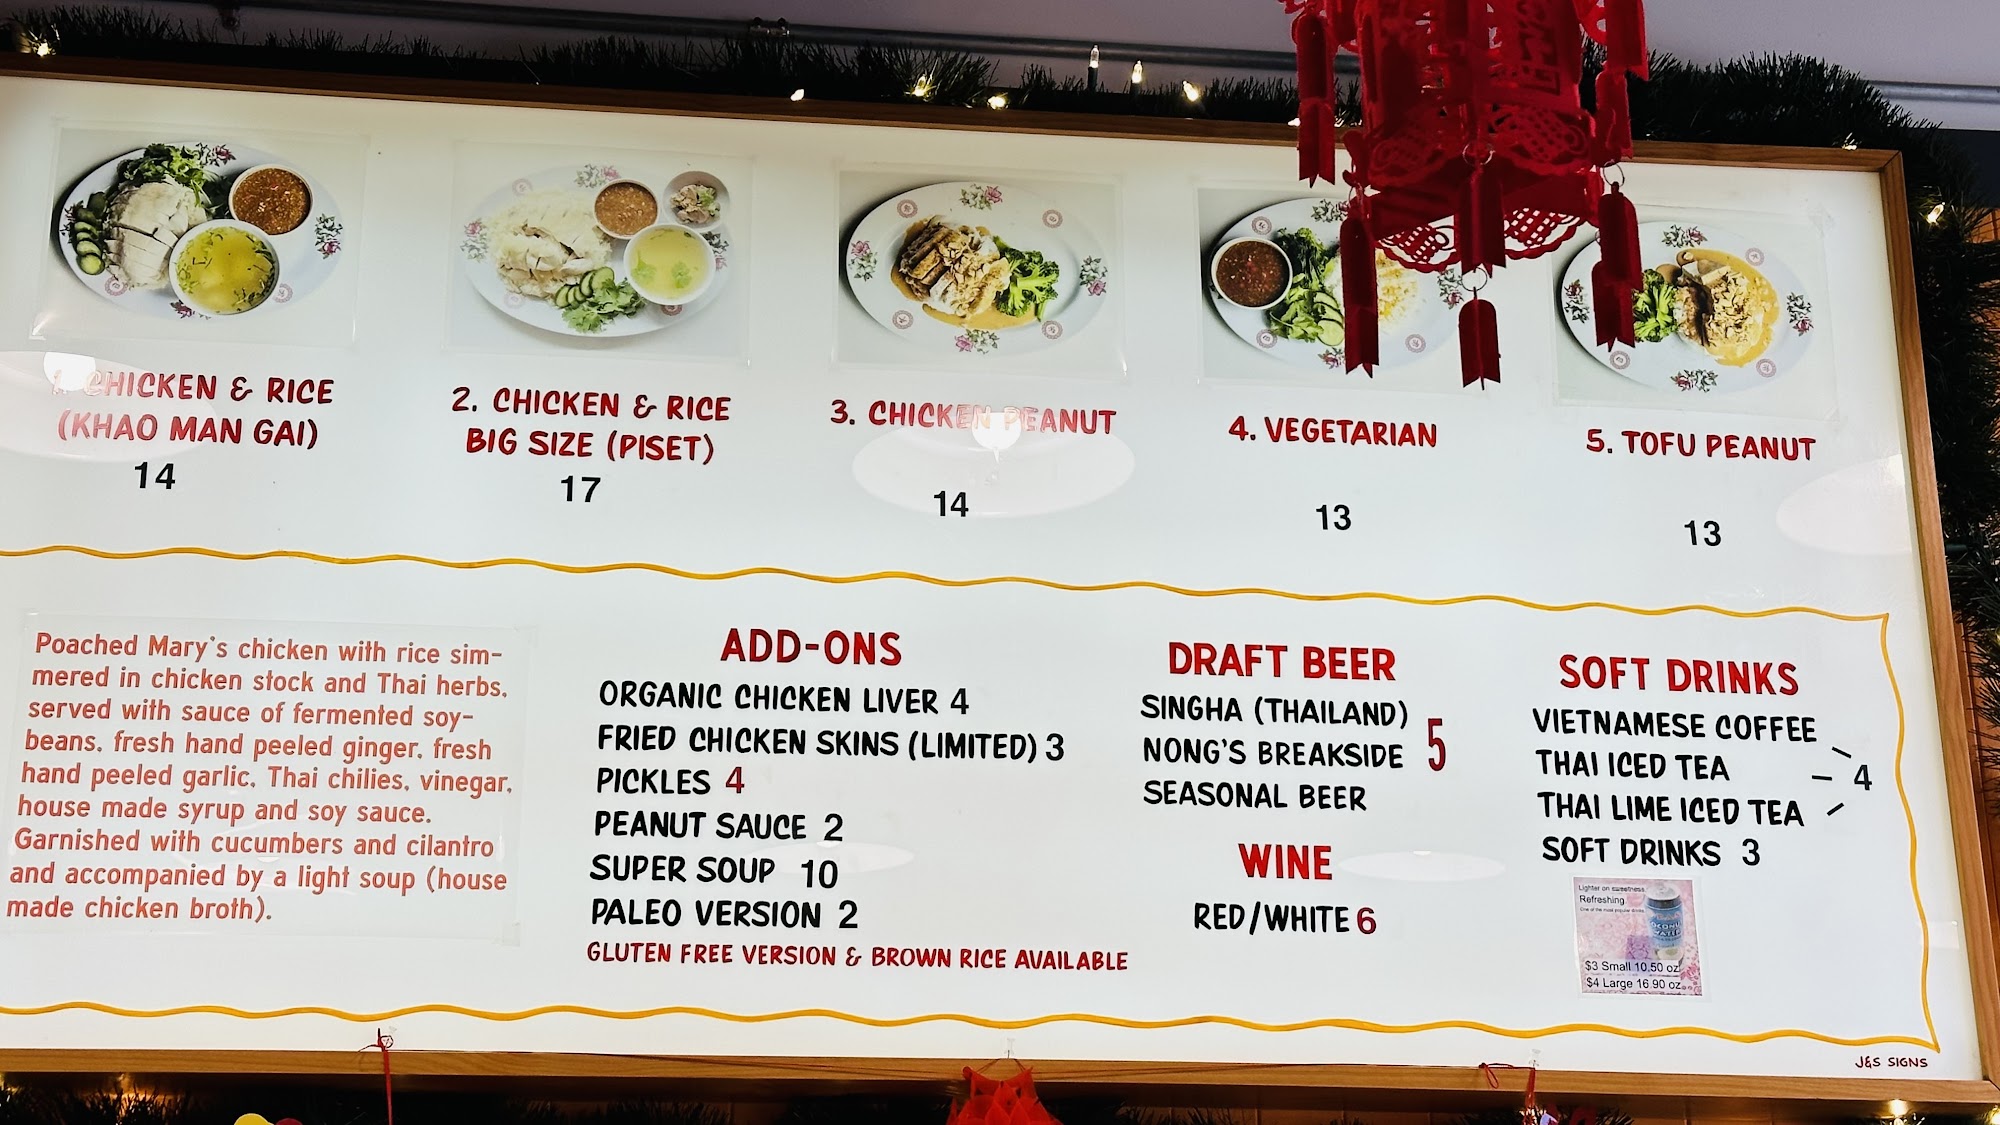 1. CHICKEN & RICE
(KHAO MAN GAI)
14
2. CHICKEN & RICE
BIG SIZE (PISET)
17
3. CHICKEN PEANUT
14
4. VEGETARIAN
13
5. TOFU PEANUT
13
Poached Mary's chicken with rice sim-
mered in chicken stock and Thai herbs,
served with sauce of fermented soy-
beans, fresh hand peeled ginger, fresh
hand peeled garlic, Thai chilies, vinegar,
house made syrup and soy sauce.
Garnished with cucumbers and cilantro
and accompanied by a light soup (house
made chicken broth).
ADD-ONS
ORGANIC CHICKEN LIVER 4
FRIED CHICKEN SKINS (LIMITED) 3
PICKLES 4
PEANUT SAUCE 2
SUPER SOUP 10
PALEO VERSION 2
GLUTEN FREE VERSION & BROWN RICE AVAILABLE
DRAFT BEER
SINGHA (THAILAND)
NONG'S BREAKSIDE 5
SEASONAL BEER
WINE
RED/WHITE 6
SOFT DRINKS
VIETNAMESE COFFEE
THAI ICED TEA - 4
THAI LIME ICED TEA
SOFT DRINKS 3
Lighter on sweetness.
Refreshing.
One of the most popular drinks.
COCONUT
WATER
$3 Small 10.50 oz
$4 Large 16.90 oz.
J&S SIGNS